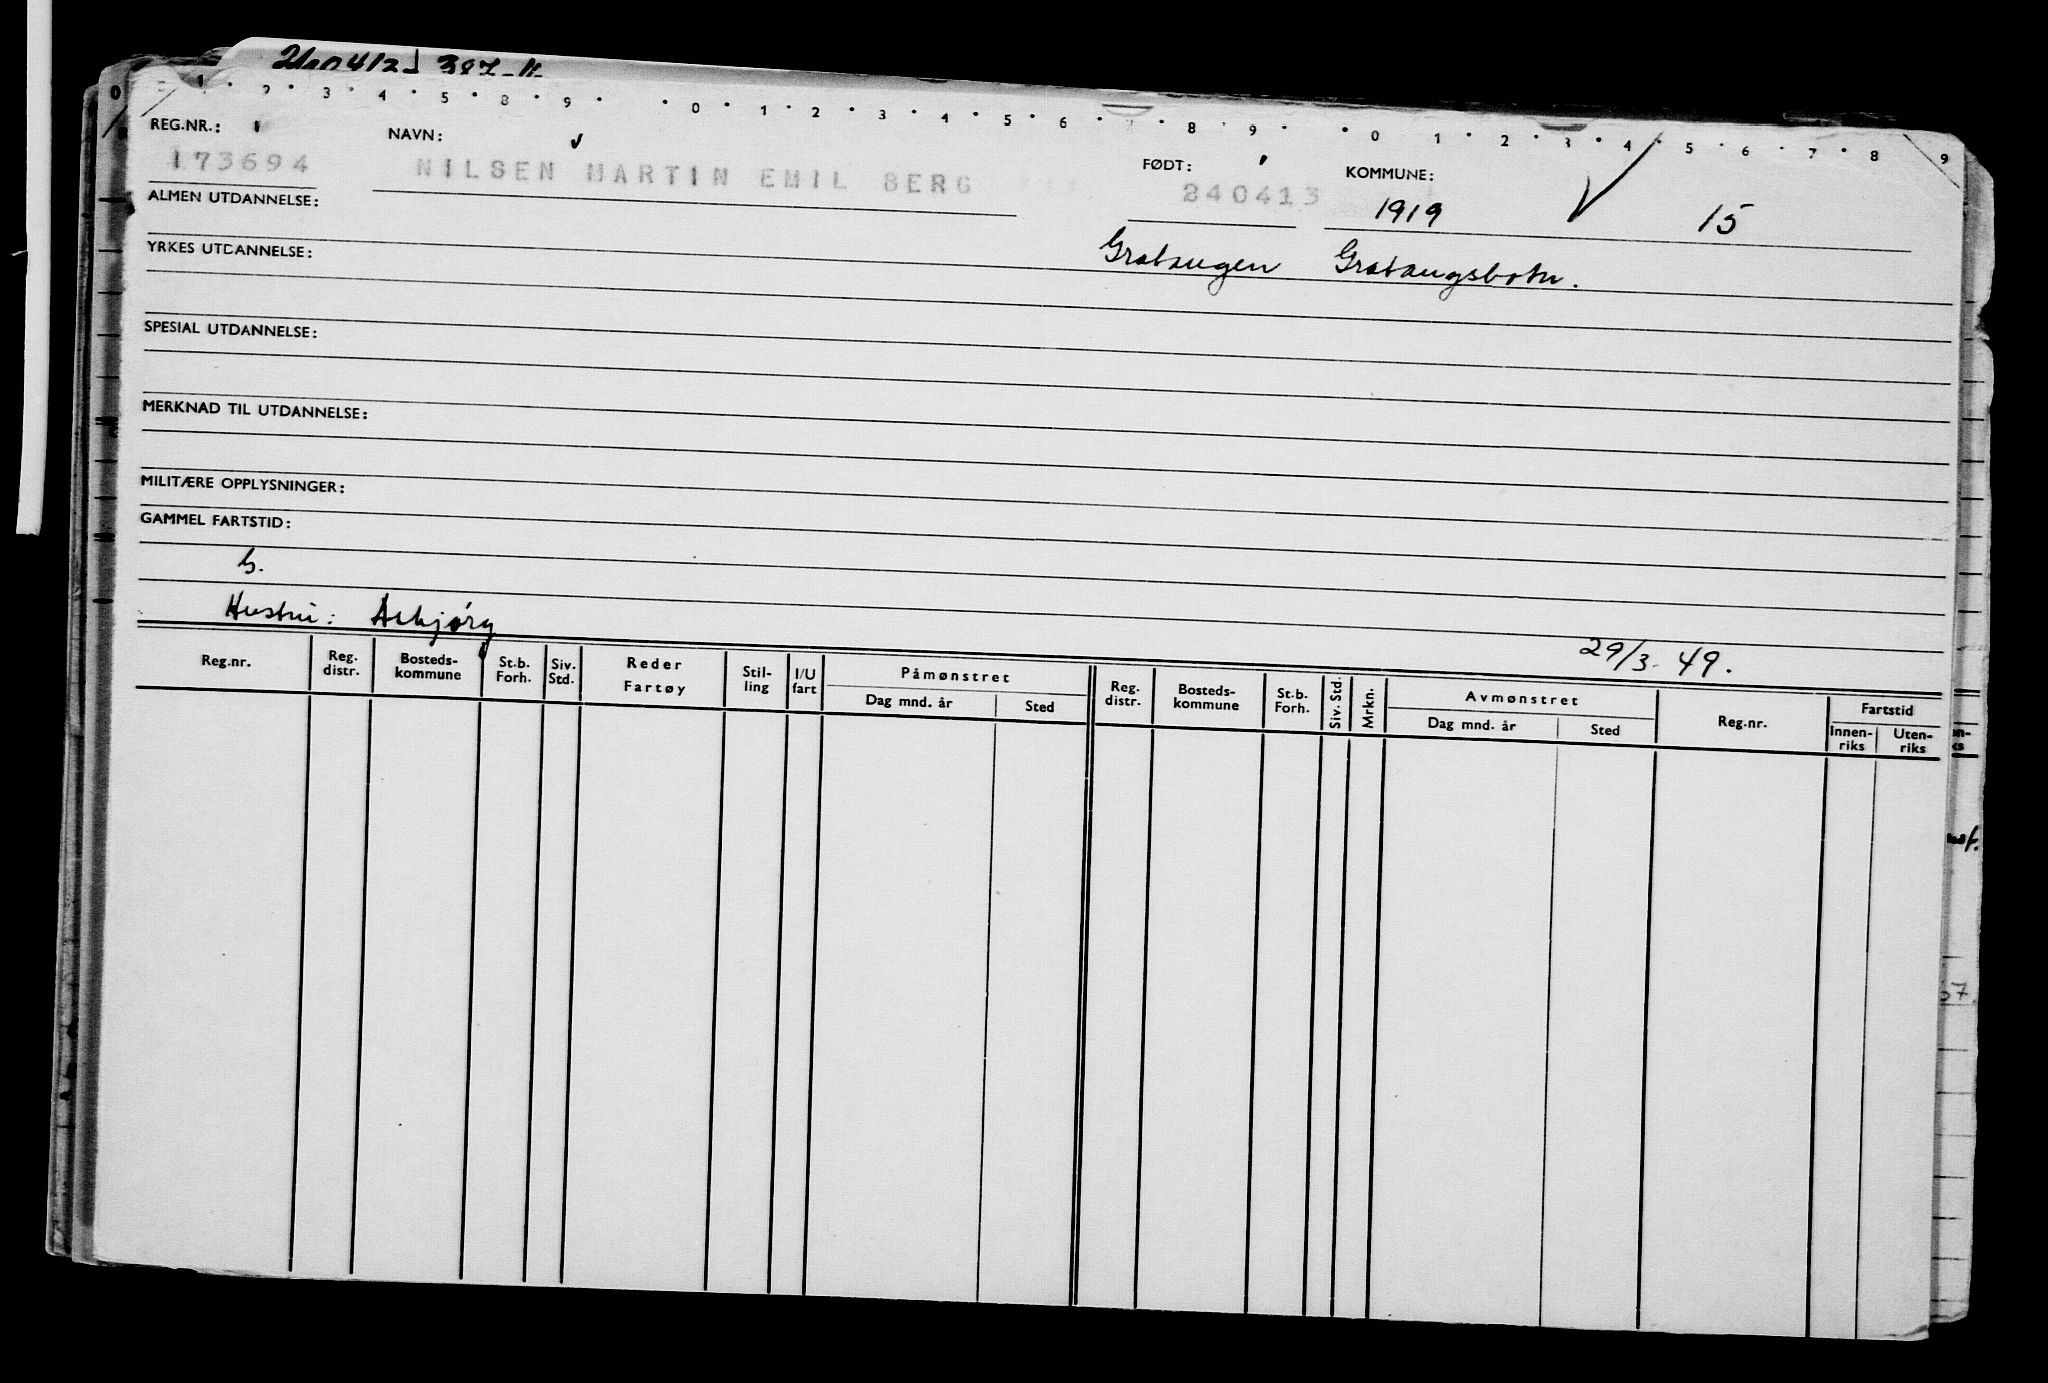 0 1 2 3 4 5 8 9 0 1 2 3 4 5 6 7 8 9 0 1 2 3 4 5 6 7 8 9
REG.NR.: NAVN: FØDT: KOMMUNE:
173694 NILSEN MARTIN EMIL BERG 240413 1919 15
ALMEN UTDANNELSE:
Gratangen Gratangsbotn.
YRKES UTDANNELSE:
SPESIAL UTDANNELSE:
MERKNAD TIL UTDANNELSE:
MILITÆRE OPPLYSNINGER:
GAMMEL FARTSTID:
Hustru: Asbjørg
29/3-49.
Reg.nr. Reg. distr. Bosteds-kommune St.b. Forh. Siv. Std. Reder Fartøy Stil-ling I/U fart Påmønstret Dag mnd. år Sted Reg. distr. Bosteds-kommune St.b. Forh. Siv. Std. Mrkn. Avmønstret Dag mnd. år Sted Reg.nr. Fartstid Innen-riks Uten-riks